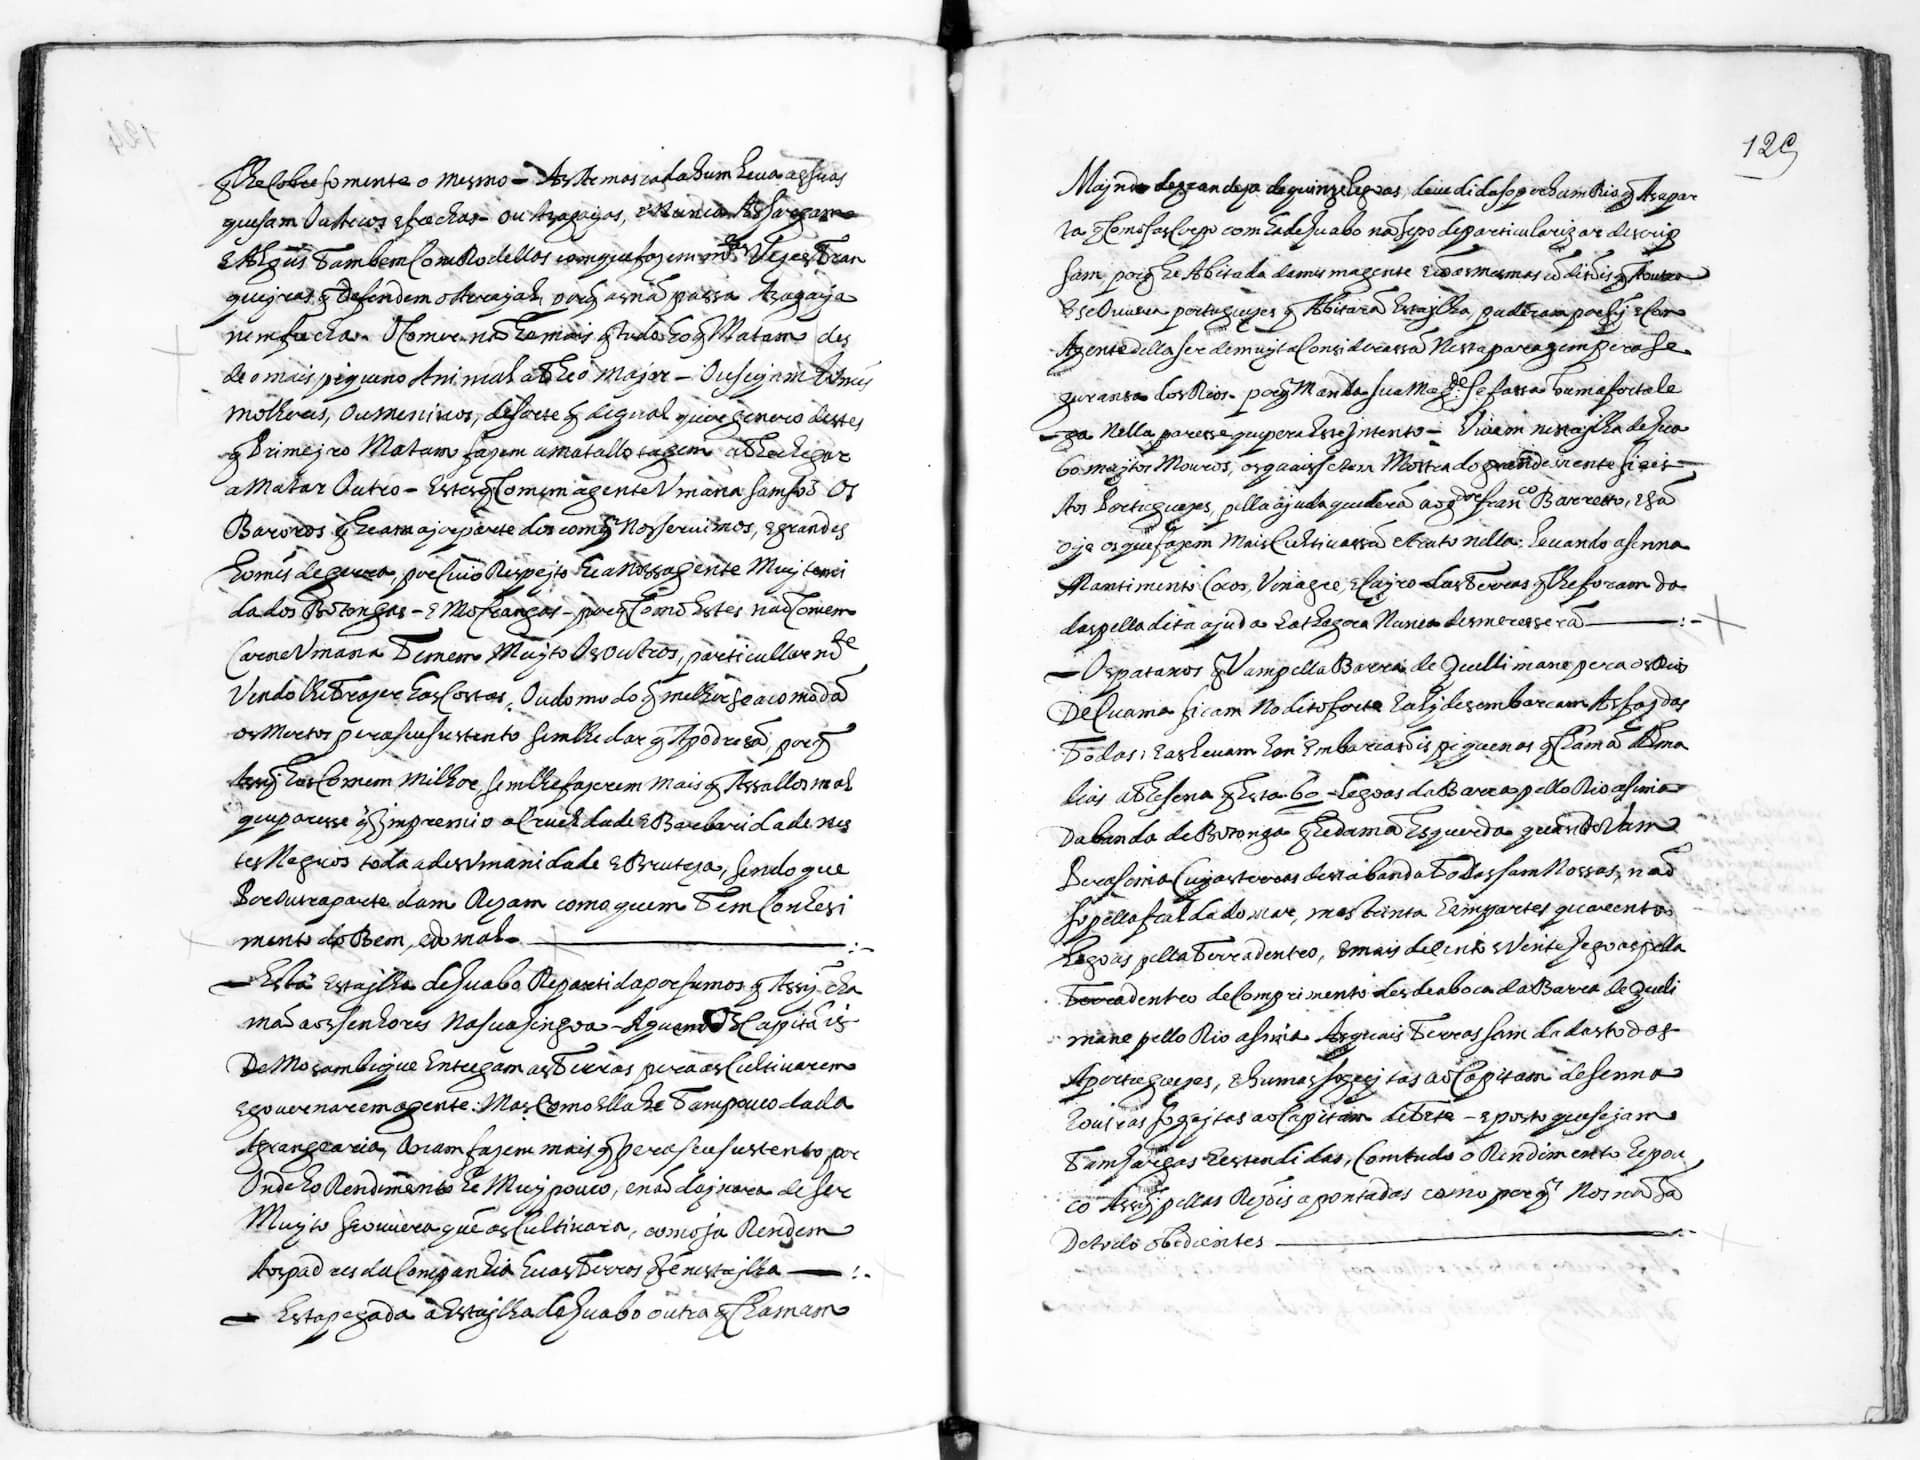 q̃ lhe Cobre somente o mesmo – As Armas cada hum leua as suas
que sam Outros e frechas – ou Azagayas, e Nunca As largam
E Algũs Tambem Com Rodellas com que fazem m.tas Vezes Tran
queyras q̃ Defendem o Arrayal, porq̃ as não passa Azagaya
nem frecha. O Comer não he mais q̃ tudo ho q̃ Matam des
de o mais piqueno Animal athe o Major – Ou sejam homẽs
molheres, Ou meninos, de sorte q̃ de qual quer genero destes
q̃ Primejro Matam fazem a matallotagem athe chegar
a Matar Outro – Estes q̃ Comem a gente Vmana sam sós Os
Bororos q̃ he a major parte dos com q̃ Nos seruimos, e grandes
homẽs de guerra, por Cuio Respejto he a Nossa gente Muy temi
da dos Botongas – e Mocrangas – porq̃ Como Estes não Comem
Carne Vmana Temem Muyto Os outros, particullarm.te
Vendo lhe Trazer has Costas, Ou do modo q̃ melhor se acomodã
os Mortos pera seu sustento sem lhe dar q̃ Apodresã, porq̃
Assy has Comem milhor, sem lhe fazerem mais q̃ Assallos mal
que paresse q̃ Impremio a Crueldade e Barbaridade nes
tes Negros toda a desVmanidade e Bruteza, sendo que
Por Outra parte dam Rezam como quem Tem Conhesi
mento do Bem, e do mal.
– Está Esta Ilha de Luabo Repartida por fumos q̃ Assy cha
mão aos senhores Na sua lingoa – A quem Os Capitãis
De Mosambique Entregam as Terras pera as Cultiuarem
e gouernarem a gente: Mas Como Ella he Tam pouco dada
A grangearia, Não fazem mais q̃ pera seu sustento por
Onde ho Rendimento he Muy pouco, e não dejxara de ser
Muyto se ouuera quẽ as Cultiuara, como ja Rendem
Aos padres da Companhia huas Terras q̃ tẽ nesta Ilha
– Esta pegada a Esta Ilha de Luabo outra q̃ Chamam
129
Majndo de grandeza de quinze legoas, deuedida so per hum Rio q̃ As apar
ta q̃ Como faz Corpo com ha de Luabo não he po de particularizar descrip
sam, porq̃ he Abitada da mesma gente e com as mesmas cõdisõis q̃ A outra
E se Ouuera portuguezes q̃ Abitarã Esta Ilha, puderam por sy e Com
A gente della ser de muyta Considerassã Nesta paragem pera se
guransa dos Rios. porq̃ Manda sua Mag.de se fassa huma fortale
za Nella paresse que pera Este Intento – Viuem nesta Ilha de Lua
bo muytos Mouros, os quais se tem Mostrado grandemente fieis
Aos Portuguezes, pella ajuda que derã ao g.dor fran.co Barretto, e sã
oje os que fazem mais Cultiuassã e trato nella, leuando a senna
Mantimento Cocos, Vinagre, e Cayro das Terras q̃ lhe foram da
das pella dita ajuda hathegora Nunca desmeressera
– Os patanos q̃ Vam pella Barra de Quellimane pera os Rios
De Cuama ficam No dito forte e aly desembarcam As fazdas
Todas; e as leuam em Embarcasõis piquenas q̃ Chamã Alma
dias athe sena q̃ Esta 60 – legoas da Barra pello Rio asima
Da banda de Botonga q̃ he da mã Esquerda quando Vam
Pera sima Cujas terras desta banda Todas sam Nossas, não
so pella fralda do mar, mas trinta e em partes quarenta
legoas pella Terra dentro, e mais de sento e Vinte legoas pella
Terra dentro de Comprimento desde a boca da Barra de Queli
mane pello Rio asima As quais Terras sam dadas todas
A portuguezes, e humas Sogeytas ao Capitam de senna
e outras Sogejtas ao Capitam de Tete – e posto que sejam
Tam largas e estendidas, Com tudo o Rendimento he pou
co Assy pellas Rezõis apontadas como por q̃ Nos não sã
De todo obedientes